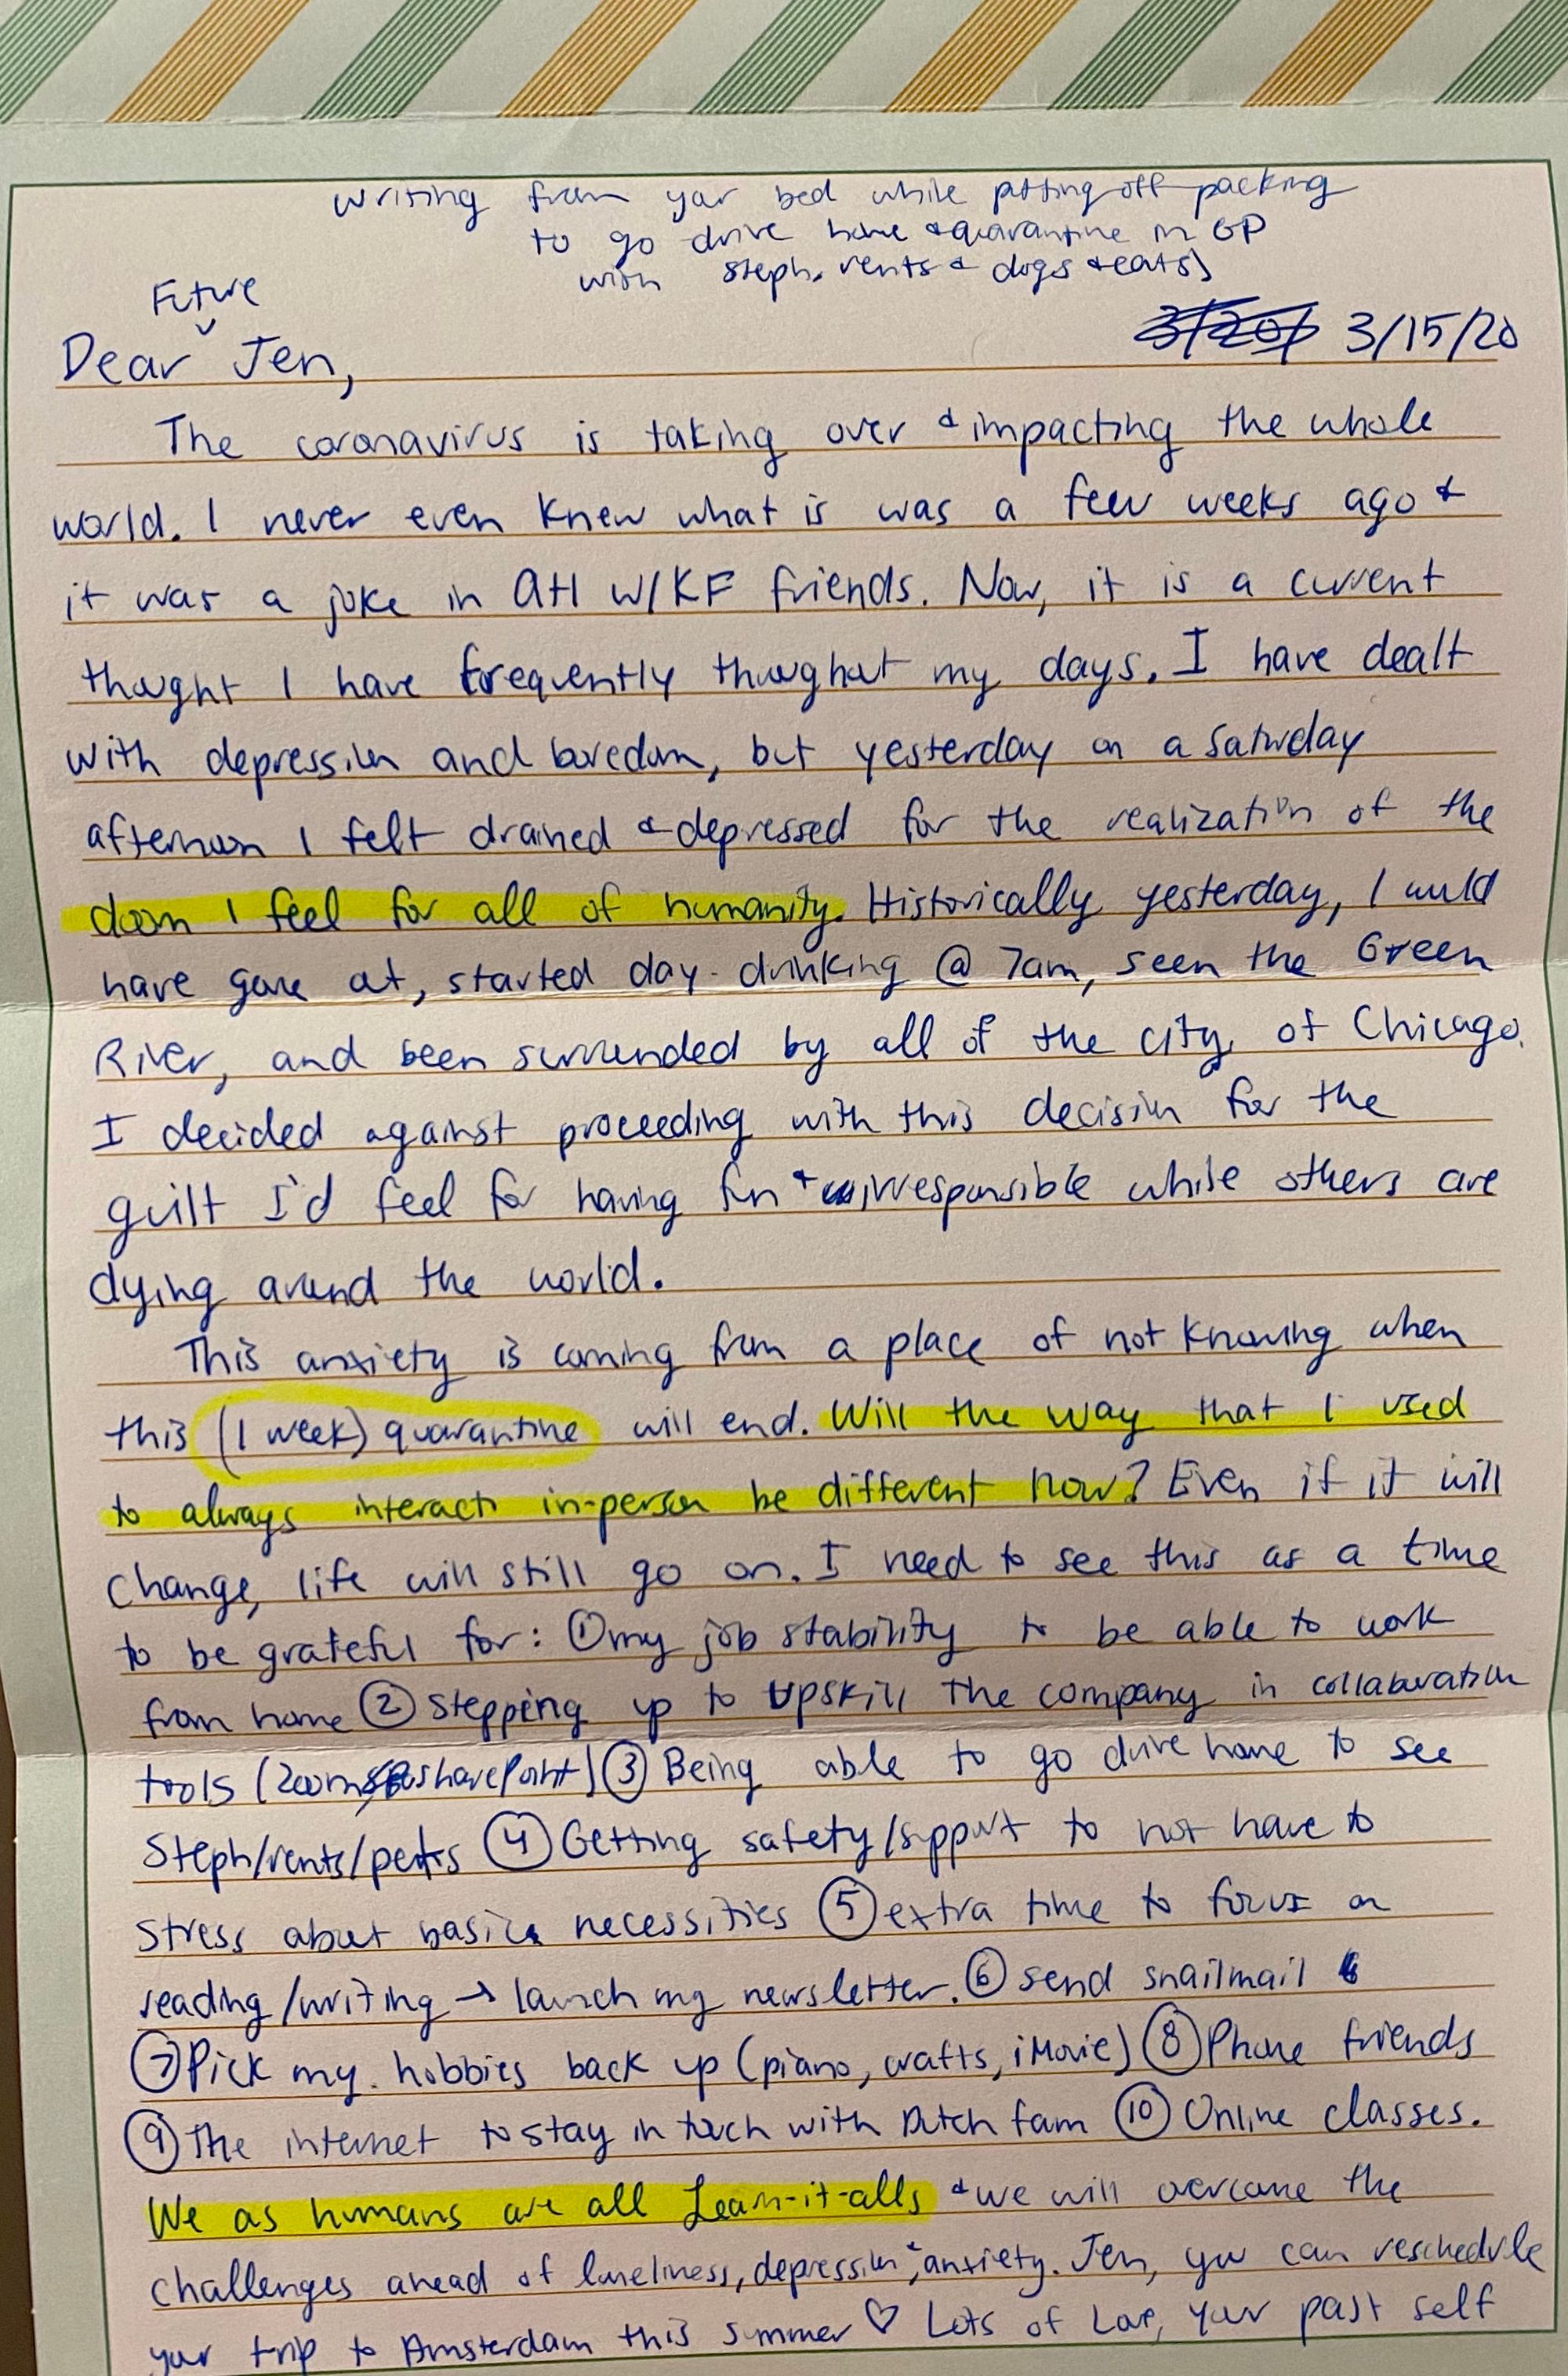 writing from your bed while putting off packing
to go drive home & quarantine in GP
with steph, rents & dogs & cats)
Future
Dear Jen,
3/15/20
The coronavirus is taking over & impacting the whole
world. I never even knew what is was a few weeks ago &
it was a joke in Atl w/KF friends. Now, it is a current
thought I have frequently throughout my days. I have dealt
with depression and boredom, but yesterday on a Saturday
afternoon I felt drained & depressed for the realization of the
doom I feel for all of humanity. Historically yesterday, I would
have gone out, started day-drinking @ 7am, seen the Green
River, and been surrounded by all of the city of Chicago.
I decided against proceeding with this decision for the
guilt I'd feel for having fun & irresponsible while others are
dying around the world.
This anxiety is coming from a place of not knowing when
this (1 week) quarantine will end. Will the way that I used
to always interact in-person be different now? Even if it will
change, life will still go on. I need to see this as a time
to be grateful for: ① my job stability to be able to work
from home ② Stepping up to upskill the company in collaboration
tools (Zoom/SharePoint) ③ Being able to go drive home to see
Steph/rents/pets ④ Getting safety/support to not have to
stress about basic necessities ⑤ extra time to focus on
reading/writing → launch my newsletter. ⑥ send snailmail
⑦ Pick my hobbies back up (piano, crafts, iMovie) ⑧ Phone friends
⑨ The internet to stay in touch with Dutch fam ⑩ Online classes.
We as humans are all Learn-it-alls & we will overcome the
challenges ahead of loneliness, depression, & anxiety. Jen, you can reschedule
your trip to Amsterdam this summer ♡ Lots of Love, your past self